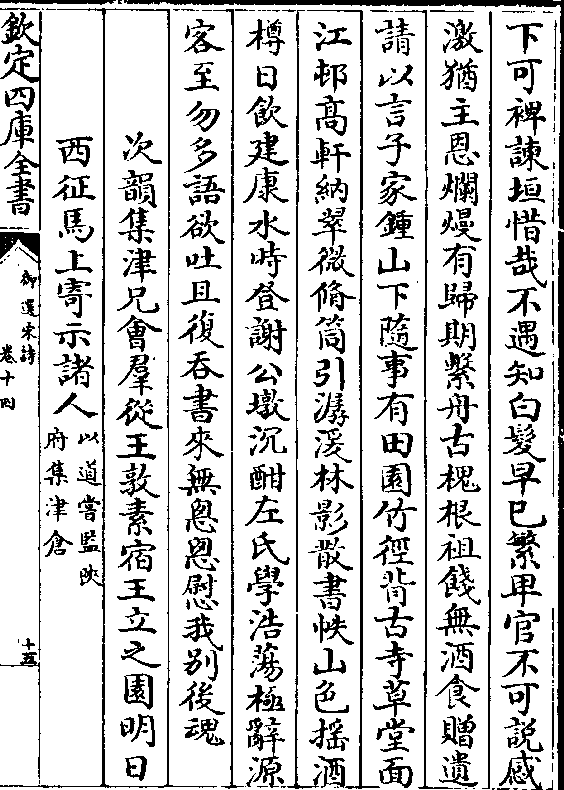 下可裨諫垣惜哉不遇知白髮早已繁卑官不可説感
激猶主恩爛熳有歸期繫舟古槐根祖餞無酒食贈遺
請以言子家鍾山下隨事有田園竹徑背古寺草堂面
江邨髙軒納翠微脩筒引潺湲林影散書帙山色揺酒
樽日飲建康水時登謝公墩沉酣左氏學浩蕩極辭源
客至勿多語欲吐且復吞書來無悤悤慰我别後魂
次韻集津兄會羣從王敦素宿王立之園明日
西征馬上寄示諸人以道嘗監陜
府集津倉
欽定四庫全書
御選宋詩
卷十四
十五